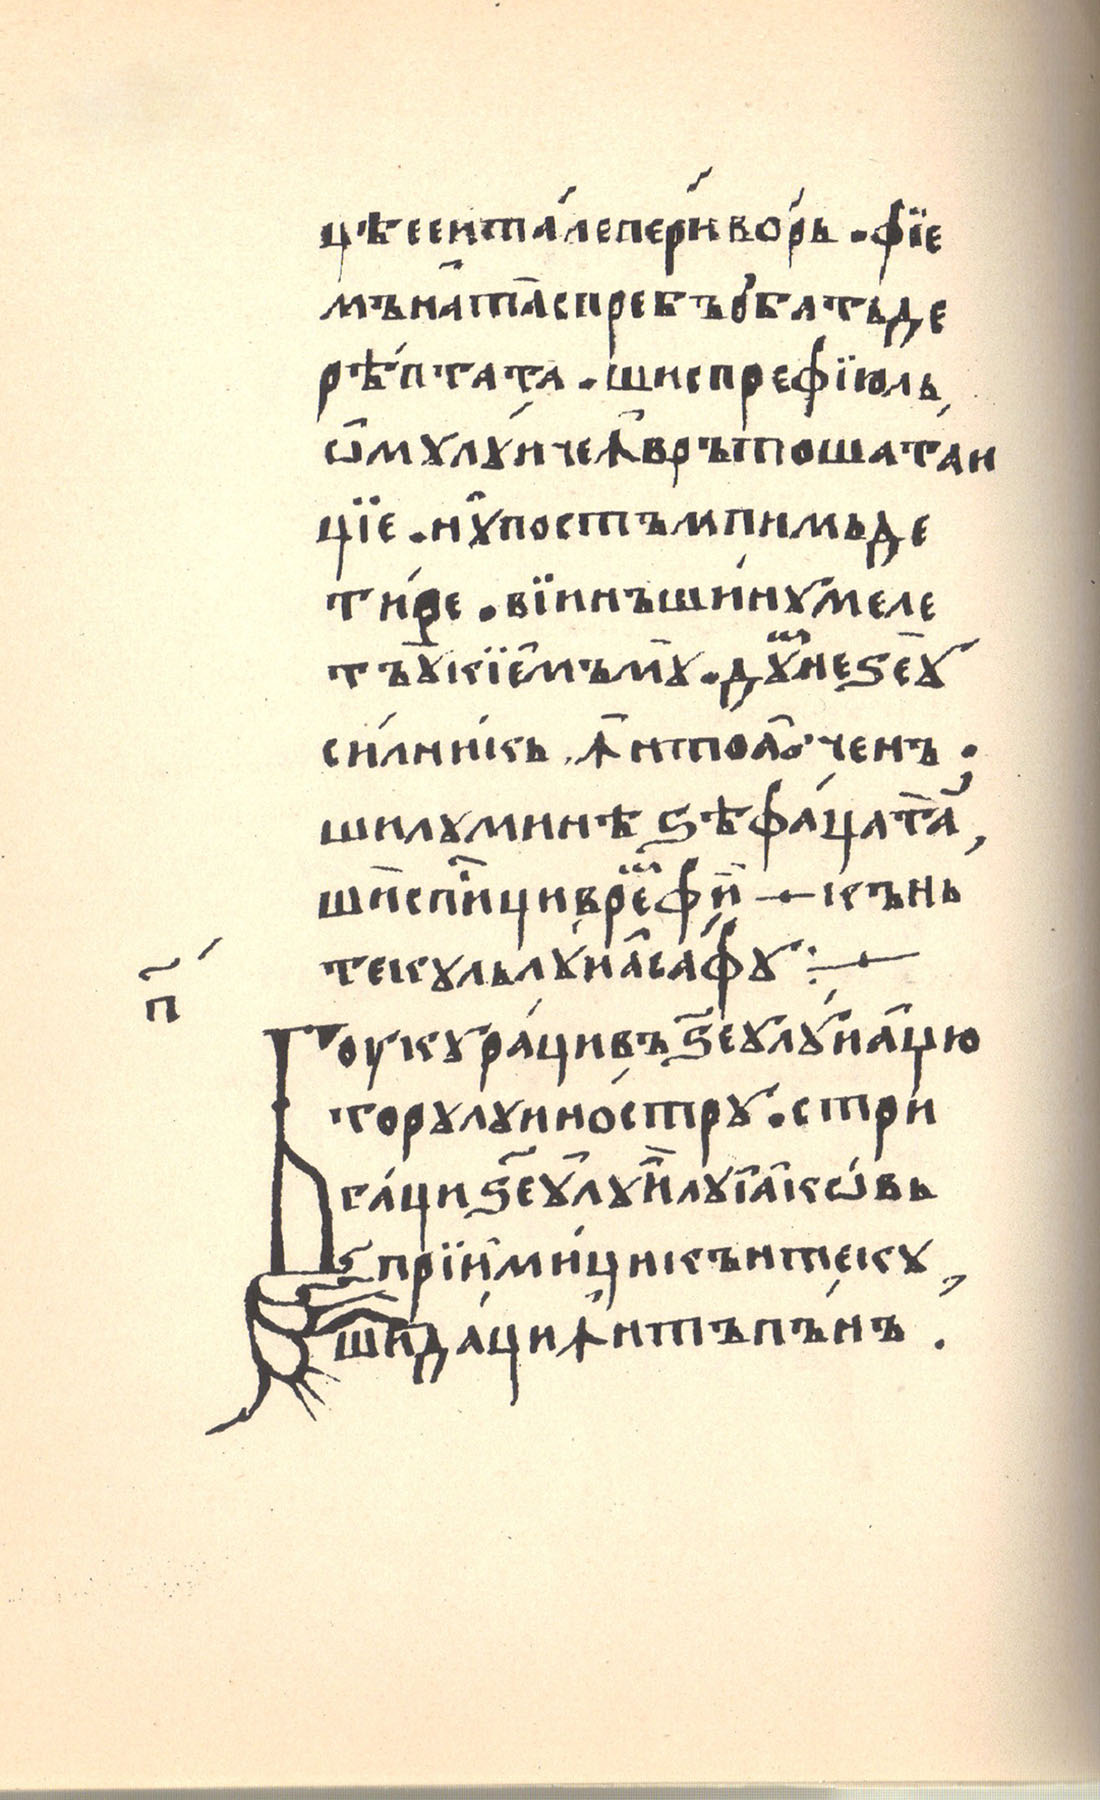 цѣ сеи та́ле пери́во́рь · фїе
мъна та спре бъ́рбатьде
рѣ́птата · шиспрефїюль
ѡ҆мꙋлꙋ́и чеꙟвръ тошатаи
цїе · нꙋпостъмпимьде
ти́ре · вїинъши́ нꙋмеле
тъꙋкїемъмꙋ · дꙋ҆мнеѕеꙋ
си́лни́кь ꙟнтоа҆рченъ ·
шилꙋминѣѕѣфа́цата ,
шисп҆ицивреⷨфи кънь
текꙋльлꙋ́иа҆са́фꙋ :
п҃
Боукꙋра́цивъ ѕеꙋлꙋ́и а҆цю
торꙋлꙋи но́стрꙋ · стри
га́ци ѕеꙋлꙋ́и лꙋі҆а҆кѡ́вь
прїими́ци кънтекꙋ ,
шида́ци ꙟнтъпъ́нъ .